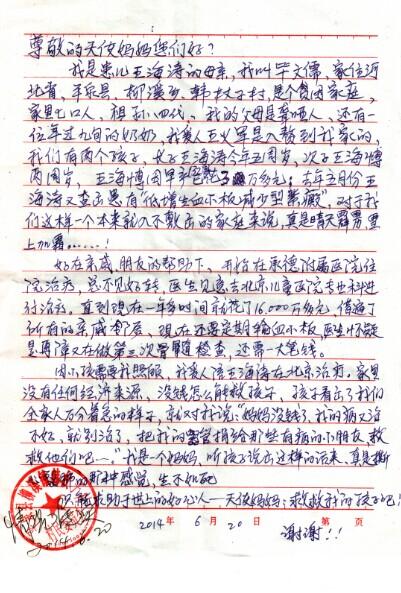 尊敬的天使妈妈您们好？
我是患儿王海涛的母亲，我叫毕文儒，家住河
北省，平泉县，柳溪乡，韩杖子村，是个贫困家庭，
家里七口人，祖孙四代。我的父母是聋哑人，还有一
位年过九旬的奶奶，我爱人王义军是入赘到我家的，
我们有两个孩子，长子王海涛今年五周岁，次子王海博
两周岁，王海博因早 万多元；去年五月份王
海涛又查出患有“低增生血小板减少型紫癜”，对于我
们这样一个本来就入不敷出的家庭来说，真是晴天霹雳雪
上加霜……！
好在亲戚，朋友的帮助下，开始在承德附属医院住
院治疗，总不见好转，医生见意去北京儿童医院专业科进
行治疗。直到现在一年多时间就花了16,000万多元，借遍了
所有的亲戚邻居，现在还要定期输血小板，医生怀疑
是再障又在做第三次骨髓检查，还需一大笔钱。
因小孩需要我照顾，我爱人陪王海涛在北京治疗。家里
没有任何经济来源，没钱怎么能救孩子，孩子看出了我们
全家人万分着急的样子，就对我说：“妈妈没钱了，我的病又治
不好，就别治了，把我的器官捐给那些有病的小朋友，救
救他们吧……”我是个妈妈，听孩子说出这样的话来，真是撕
的那种感觉，生不如死
求助于世上的好心人—天使妈妈：救救我的孩子吧！
2014年 6月 20日 第 页
2014.6.20
谢谢！！